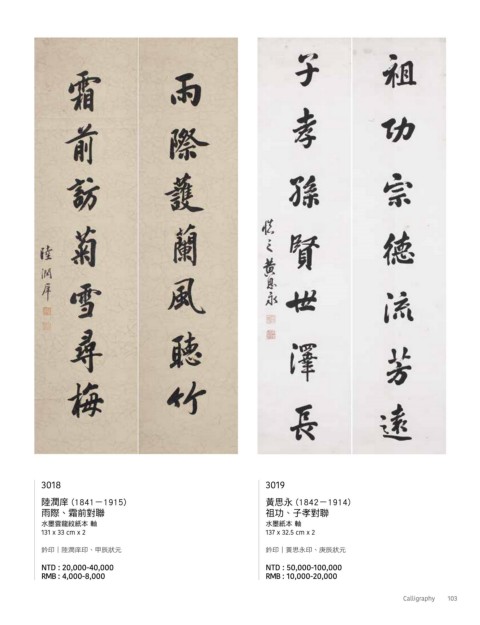 雨際護蘭風聽竹
霜前訪菊雪尋梅
陸潤庠
祖功宗德流芳遠
子孝孫賢世澤長
慎之黃思永
3018
陸潤庠（1841－1915）
雨際、霜前對聯
水墨雲龍紋紙本 軸
131 x 33 cm x 2
鈐印｜陸潤庠印、甲辰狀元
NTD : 20,000-40,000
RMB : 4,000-8,000
3019
黃思永（1842－1914）
祖功、子孝對聯
水墨紙本 軸
137 x 32.5 cm x 2
鈐印｜黃思永印、庚辰狀元
NTD : 50,000-100,000
RMB : 10,000-20,000
Calligraphy 103